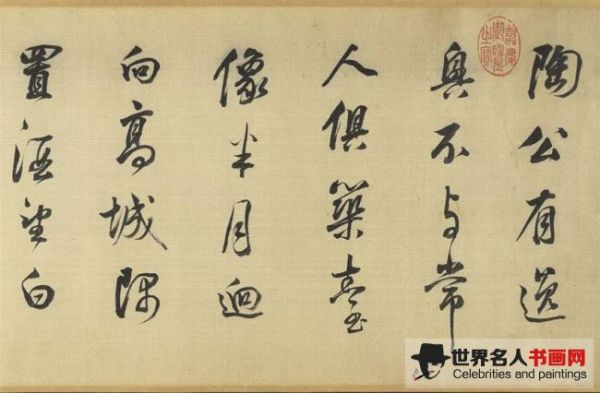 嘉慶御覽之寶
陶公有逸
興不与常
人俱築臺
像半月逈
向高城隅
置酒望白
世界名人书画网
Celebrities and paintings